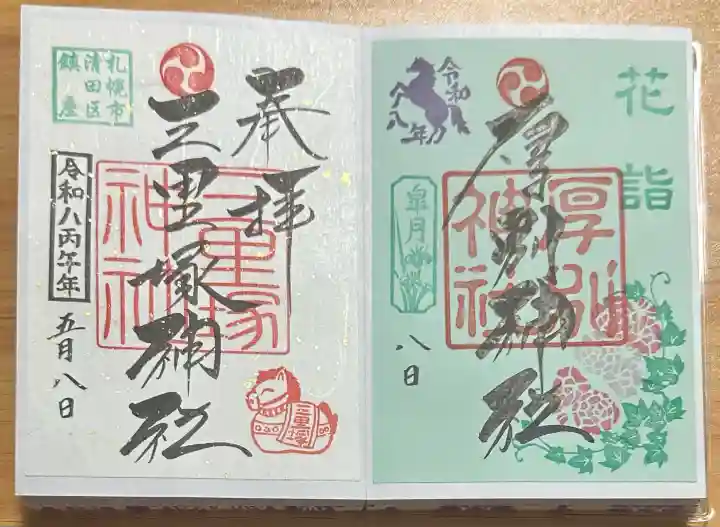 奉拝
三里塚神社
三里塚
神社
札幌市
清田区
鎮座
令和八丙午年
五月八日
三里塚
花詣
厚別神社
厚別
神社
令和
八年
皐月
八日